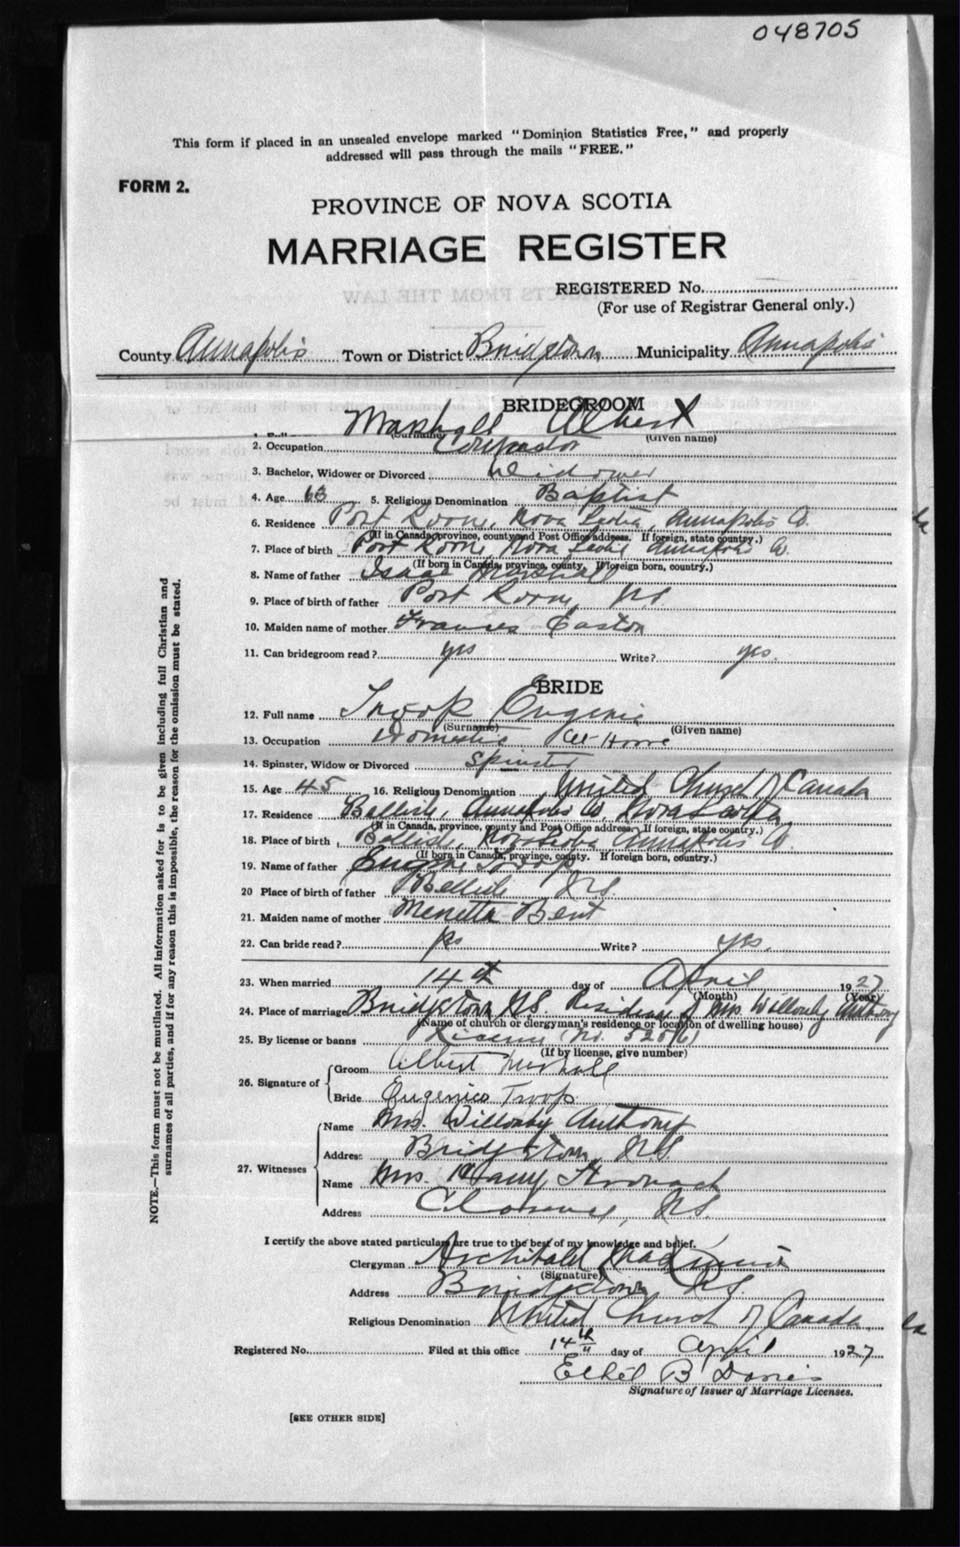 048705
This form if placed in an unsealed envelope marked "Dominion Statistics Free," and properly
addressed will pass through the mails "FREE."
FORM 2.
PROVINCE OF NOVA SCOTIA
MARRIAGE REGISTER
REGISTERED No.
(For use of Registrar General only.)
County Annapolis Town or District Bridgetown Municipality Annapolis
BRIDEGROOM
Marshall Albert X
(Surname) (Given name)
2. Occupation
3. Bachelor, Widower or Divorced Widower
4. Age 63 5. Religious Denomination Baptist
6. Residence Port Lorne, Nova Scotia, Annapolis Co.
(If in Canada, province, county and Post Office address. If foreign, state country.)
7. Place of birth Port Lorne, Nova Scotia Annapolis Co.
(If born in Canada, province, county. If foreign born, country.)
8. Name of father Isaac Marshall
9. Place of birth of father Port Lorne, N.S.
10. Maiden name of mother Frances Easton
11. Can bridegroom read? yes Write? yes.
BRIDE
12. Full name Troop Eugenie
(Surname) (Given name)
13. Occupation Domestic At Home
14. Spinster, Widow or Divorced Spinster
15. Age 45 16. Religious Denomination United Church of Canada
17. Residence Bellisle, Annapolis Co, Nova Scotia
(If in Canada, province, county and Post Office address. If foreign, state country.)
18. Place of birth Bellisle, Nova Scotia Annapolis Co.
(If born in Canada, province, county. If foreign born, country.)
19. Name of father Troop
20 Place of birth of father Bellisle N.S.
21. Maiden name of mother Menetta Bent
22. Can bride read? yes Write? yes.
23. When married 14th day of April 1927
(Month) (Year)
24. Place of marriage Bridgetown N.S. Residence of Mrs. Willoughby Anthony
(Name of church or clergyman's residence or location of dwelling house)
25. By license or banns License (No.
(If by license, give number)
26. Signature of
Groom Albert Marshall
Bride Eugenie Troop
27. Witnesses
Name Mrs. Willoughby Anthony
Address Bridgetown, N.S.
Name Mrs. Harry Stronach
Address Clarence, N.S.
I certify the above stated particulars are true to the best of my knowledge and belief.
Clergyman Archibald
(Signature)
Address Bridgetown N.S.
Religious Denomination United Church of Canada
Registered No. Filed at this office 14th day of April 1927
Ethel B Davis
Signature of Issuer of Marriage Licenses.
[SEE OTHER SIDE]
NOTE.—This form must not be mutilated. All information asked for is to be given including full Christian and
surnames of all parties, and if for any reason this is impossible, the reason for the omission must be stated.